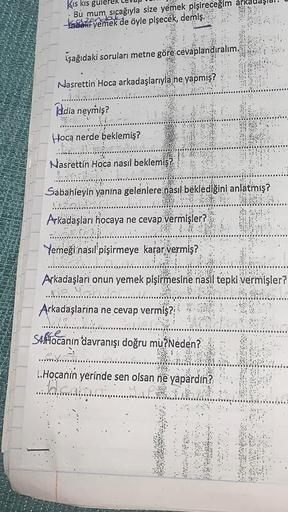 Kıs kıs gülerek
Bu mum sıcağıyla size yemek pişireceğim
yemek de öyle pişecek, demiş.
Aşağıdaki soruları metne göre cevaplandıralım.
Nasrettin Hoca arkadaşlarıyla ne yapmış?
İddia neymiş?
Hoca nerde beklemiş?
Nasrettin Hoca nasıl beklemiş?
Sabahleyin yanına gelenlere nasıl beklediğini anlatmış?
Arkadaşları hocaya ne cevap vermişler?
Yemeği nasıl pişirmeye karar vermiş?
Arkadaşları onun yemek pişirmesine nasıl tepki vermişler?
Arkadaşlarına ne cevap vermiş?
Hocanın davranışı doğru mu?Neden?
Hocanın yerinde sen olsan ne yapardın?